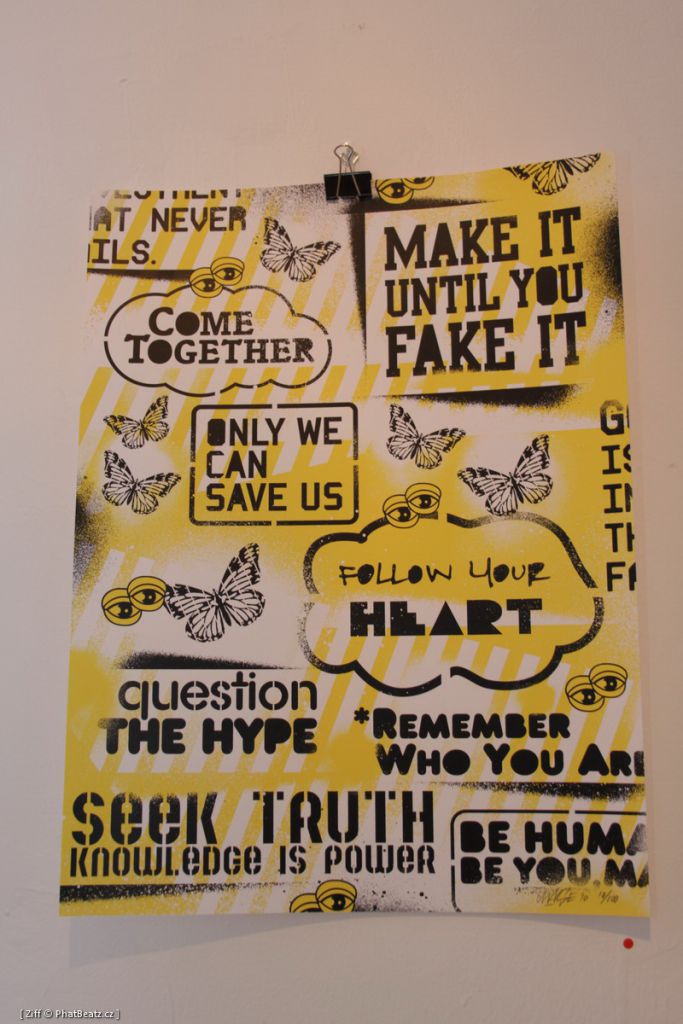 AT NEVER
ILS.
MAKE IT
UNTIL YOU
FAKE IT
COME
TOGETHER
ONLY WE
CAN
SAVE US
G
IS
IN
TH
FA
FOLLOW YOUR
HEART
question
THE HYPE
*REMEMBER
WHO YOU ARE
SEEK TRUTH
KNOWLEDGE IS POWER
BE HUMA
BE YOU.MA
[ Ziff © PhatBeatz.cz ]